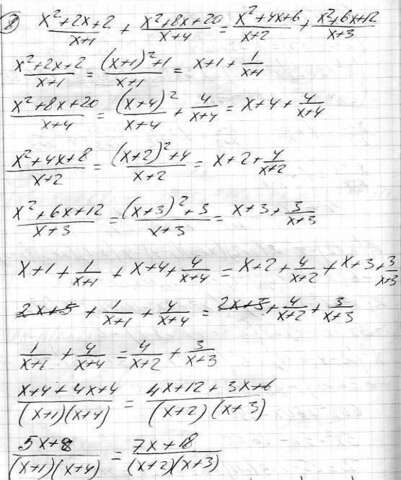 8) (x²+2x+2)/(x+1) + (x²+8x+20)/(x+4) = (x²+4x+6)/(x+2) + (x²+6x+12)/(x+3)
(x²+2x+2)/(x+1) = ((x+1)²+1)/(x+1) = x+1+1/(x+1)
(x²+8x+20)/(x+4) = (x+4)²/(x+4) + 4/(x+4) = x+4+4/(x+4)
(x²+4x+8)/(x+2) = ((x+2)²+4)/(x+2) = x+2+4/(x+2)
(x²+6x+12)/(x+3) = ((x+3)²+3)/(x+3) = x+3+3/(x+3)
x+1+1/(x+1) + x+4+4/(x+4) = x+2+4/(x+2) + x+3+3/(x+3)
2x+5 + 1/(x+1) + 4/(x+4) = 2x+5 + 4/(x+2) + 3/(x+3)
1/(x+1) + 4/(x+4) = 4/(x+2) + 3/(x+3)
(x+4+4x+4)/((x+1)(x+4)) = (4x+12+3x+6)/((x+2)(x+3))
(5x+8)/((x+1)(x+4)) = (7x+18)/((x+2)(x+3))